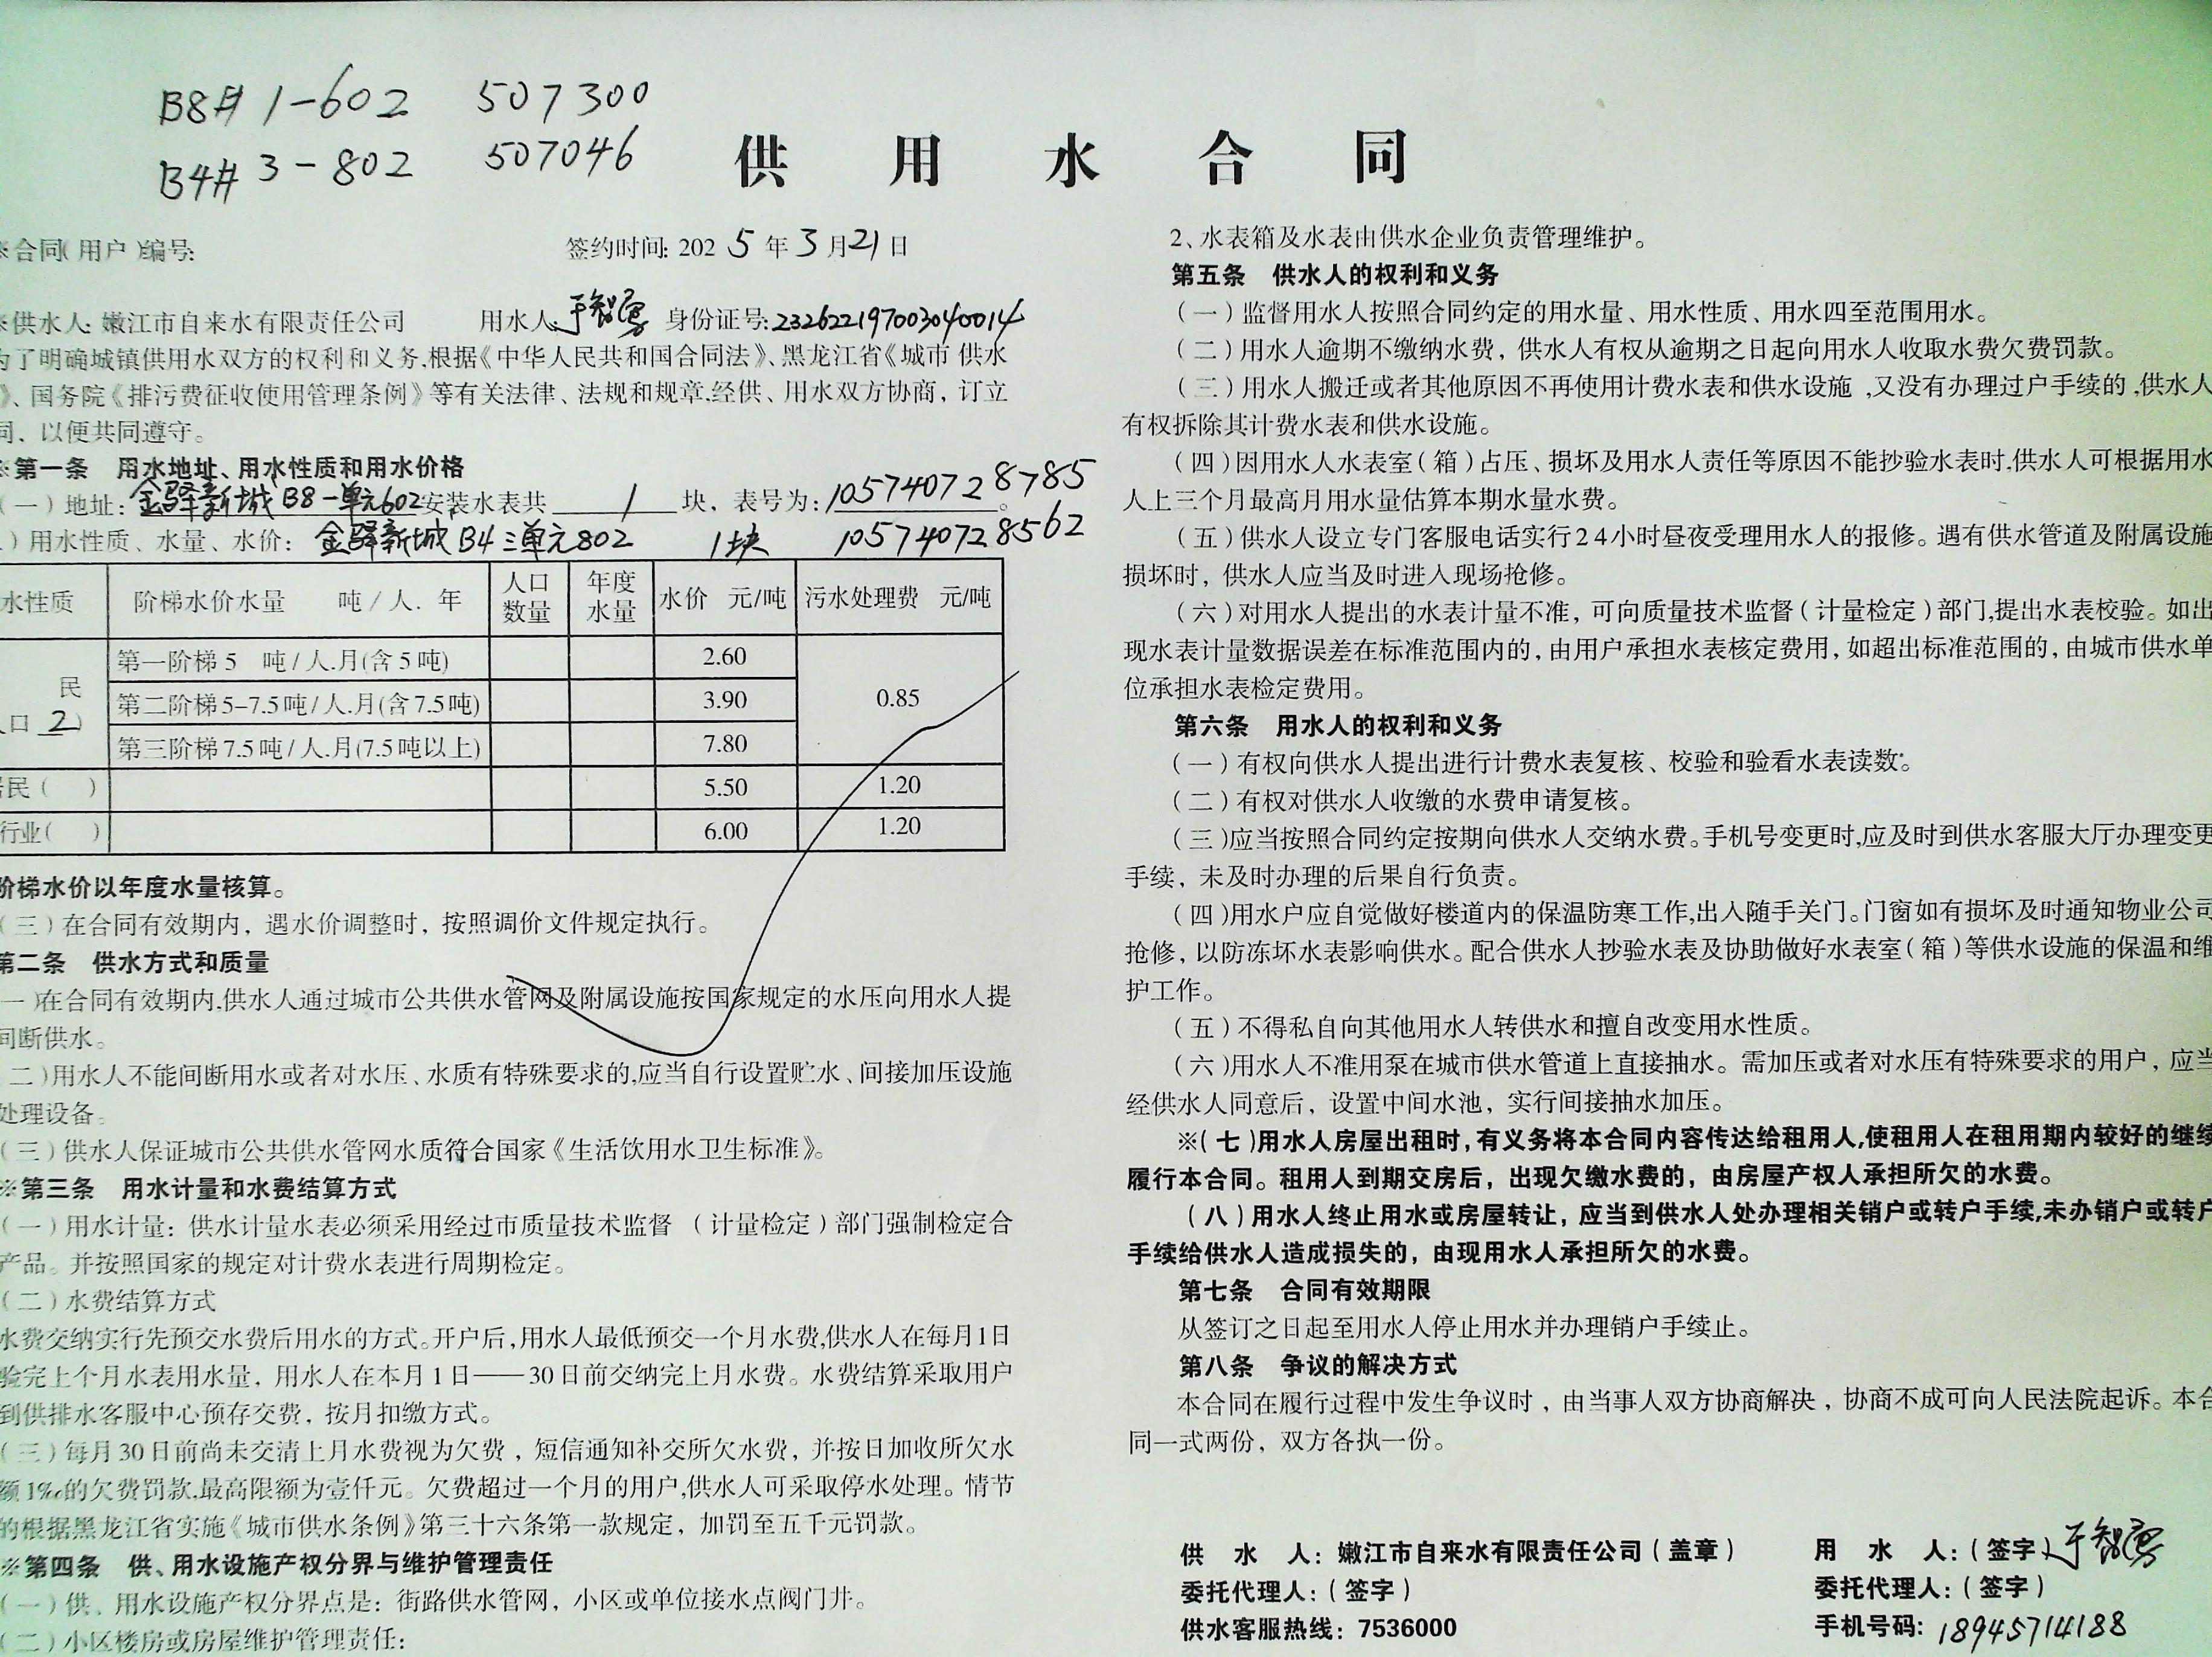 B8# 1-602 507300
B4# 3-802 507046
供用水合同
※合同(用户)编号:
签约时间: 2025年3月21日
※供水人: 嫩江市自来水有限责任公司 用水人: 于智勇 身份证号: 232622197003040014
为了明确城镇供用水双方的权利和义务,根据《中华人民共和国合同法》、黑龙江省《城市 供水
》、国务院《排污费征收使用管理条例》等有关法律、法规和规章,经供、用水双方协商，订立
同，以便共同遵守。
※第一条 用水地址、用水性质和用水价格
(一)地址: 金驿新城B8一单元602安装水表共 1 块，表号为: 105740728785。
)用水性质、水量、水价: 金驿新城B4三单元802 1块 105740728562
水性质 阶梯水价水量 吨/人. 年 人口数量 年度水量 水价 元/吨 污水处理费 元/吨
民 口 2)
第一阶梯5 吨/人.月(含5吨) 2.60
第二阶梯5-7.5吨/人.月(含7.5吨) 3.90 0.85
第三阶梯7.5吨/人.月(7.5吨以上) 7.80
居民( ) 5.50 1.20
行业( ) 6.00 1.20
阶梯水价以年度水量核算。
(三)在合同有效期内，遇水价调整时，按照调价文件规定执行。
第二条 供水方式和质量
一)在合同有效期内,供水人通过城市公共供水管网及附属设施按国家规定的水压向用水人提
间断供水。
二)用水人不能间断用水或者对水压、水质有特殊要求的,应当自行设置贮水、间接加压设施
处理设备。
(三)供水人保证城市公共供水管网水质符合国家《生活饮用水卫生标准》。
※第三条 用水计量和水费结算方式
(一)用水计量: 供水计量水表必须采用经过市质量技术监督 (计量检定)部门强制检定合
产品。并按照国家的规定对计费水表进行周期检定。
(二)水费结算方式
水费交纳实行先预交水费后用水的方式。开户后,用水人最低预交一个月水费,供水人在每月1日
验完上个月水表用水量，用水人在本月1日——30日前交纳完上月水费。水费结算采取用户
到供排水客服中心预存交费，按月扣缴方式。
(三)每月30日前尚未交清上月水费视为欠费，短信通知补交所欠水费，并按日加收所欠水
额1‰的欠费罚款,最高限额为壹仟元。欠费超过一个月的用户,供水人可采取停水处理。情节
的根据黑龙江省实施《城市供水条例》第三十六条第一款规定，加罚至五千元罚款。
※第四条 供、用水设施产权分界与维护管理责任
(一)供、用水设施产权分界点是: 街路供水管网，小区或单位接水点阀门井。
(二)小区楼房或房屋维护管理责任:
2、水表箱及水表由供水企业负责管理维护。
第五条 供水人的权利和义务
(一)监督用水人按照合同约定的用水量、用水性质、用水四至范围用水。
(二)用水人逾期不缴纳水费，供水人有权从逾期之日起向用水人收取水费欠费罚款。
(三)用水人搬迁或者其他原因不再使用计费水表和供水设施,又没有办理过户手续的,供水人
有权拆除其计费水表和供水设施。
(四)因用水人水表室(箱)占压、损坏及用水人责任等原因不能抄验水表时,供水人可根据用水
人上三个月最高月用水量估算本期水量水费。
(五)供水人设立专门客服电话实行24小时昼夜受理用水人的报修。遇有供水管道及附属设施
损坏时，供水人应当及时进入现场抢修。
(六)对用水人提出的水表计量不准，可向质量技术监督(计量检定)部门,提出水表校验。如出
现水表计量数据误差在标准范围内的，由用户承担水表核定费用，如超出标准范围的，由城市供水单
位承担水表检定费用。
第六条 用水人的权利和义务
(一)有权向供水人提出进行计费水表复核、校验和验看水表读数。
(二)有权对供水人收缴的水费申请复核。
(三)应当按照合同约定按期向供水人交纳水费。手机号变更时,应及时到供水客服大厅办理变更
手续，未及时办理的后果自行负责。
(四)用水户应自觉做好楼道内的保温防寒工作,出入随手关门。门窗如有损坏及时通知物业公司
抢修，以防冻坏水表影响供水。配合供水人抄验水表及协助做好水表室(箱)等供水设施的保温和维
护工作。
(五)不得私自向其他用水人转供水和擅自改变用水性质。
(六)用水人不准用泵在城市供水管道上直接抽水。需加压或者对水压有特殊要求的用户，应当
经供水人同意后，设置中间水池，实行间接抽水加压。
※(七)用水人房屋出租时,有义务将本合同内容传达给租用人,使租用人在租用期内较好的继续
履行本合同。租用人到期交房后，出现欠缴水费的，由房屋产权人承担所欠的水费。
(八)用水人终止用水或房屋转让，应当到供水人处办理相关销户或转户手续,未办销户或转户
手续给供水人造成损失的，由现用水人承担所欠的水费。
第七条 合同有效期限
从签订之日起至用水人停止用水并办理销户手续止。
第八条 争议的解决方式
本合同在履行过程中发生争议时，由当事人双方协商解决，协商不成可向人民法院起诉。本合
同一式两份，双方各执一份。
供水人: 嫩江市自来水有限责任公司(盖章)
委托代理人:(签字)
供水客服热线: 7536000
用水人:(签字) 于智勇
委托代理人:(签字)
手机号码: 18945714188